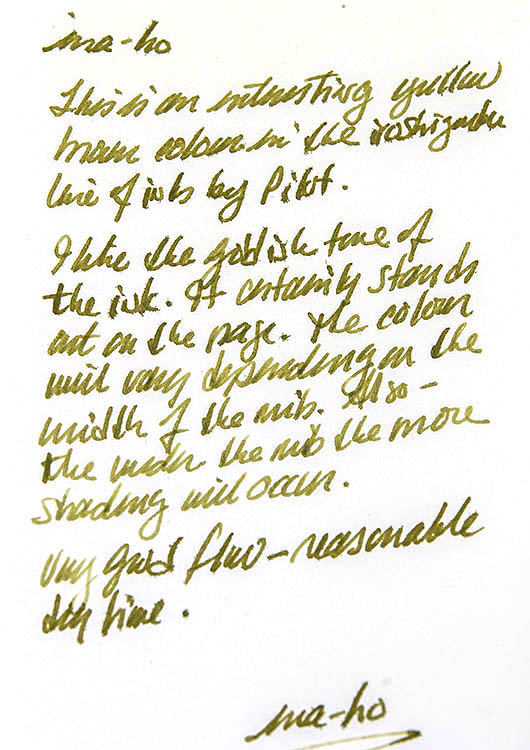 ina-ho
This is an interesting yellow
brown colour in the iroshizuku
line of inks by Pilot.
I like the goldish tone of
the ink. It certainly stands
out on the page. The colour
will vary depending on the
width of the nib. Also -
the wider the nib the more
shading will occur.
Very good flow - reasonable
dry time.
ina-ho